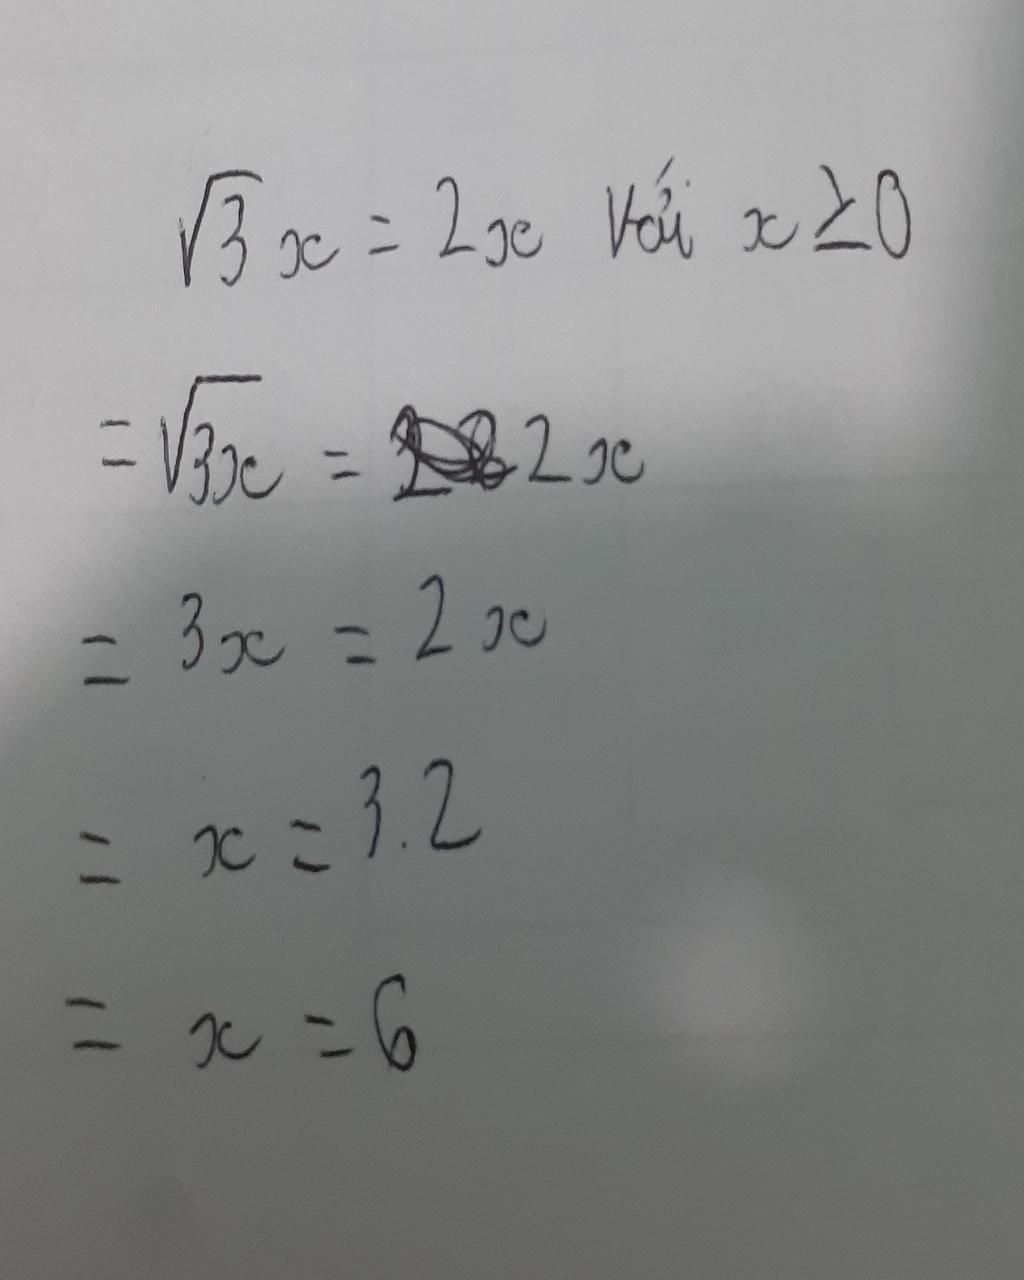 √3 x = 2x Với x ≥ 0
= √3x = 2x
= 3x = 2x
= x = 3.2
= x = 6